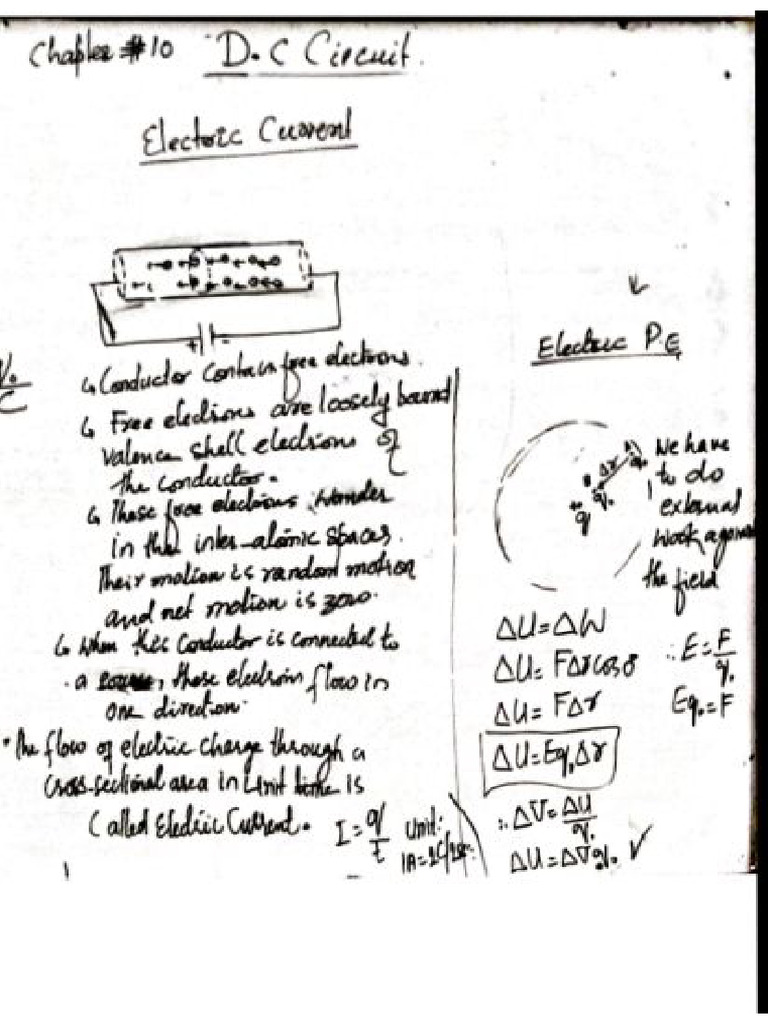 Chapter #10 D.C Circuit.
Electric Current
+ -
Conductor Contain free electrons.
Free electrons are loosely bound
valence shell electrons of
the conductor.
These free electrons wonder
in the inter-atomic spaces.
Their motion is random motion
and net motion is zero.
When this Conductor is connected to
a source, these electron flow in
one direction.
The flow of electric charge through a
cross-sectional area in Unit time is
Called Electric Current. I = q/t Unit:
1A = 1C/1sec
Electric P.E
Δr
q₀
+
q
We have
to do
external
work against
the field
ΔU = ΔW
ΔU = FΔr cosθ
∴ E = F/q₀
ΔU = FΔr
Eq₀ = F
ΔU = Eq₀Δr
∴ ΔV = ΔU/q₀
ΔU = ΔVq₀ ✓